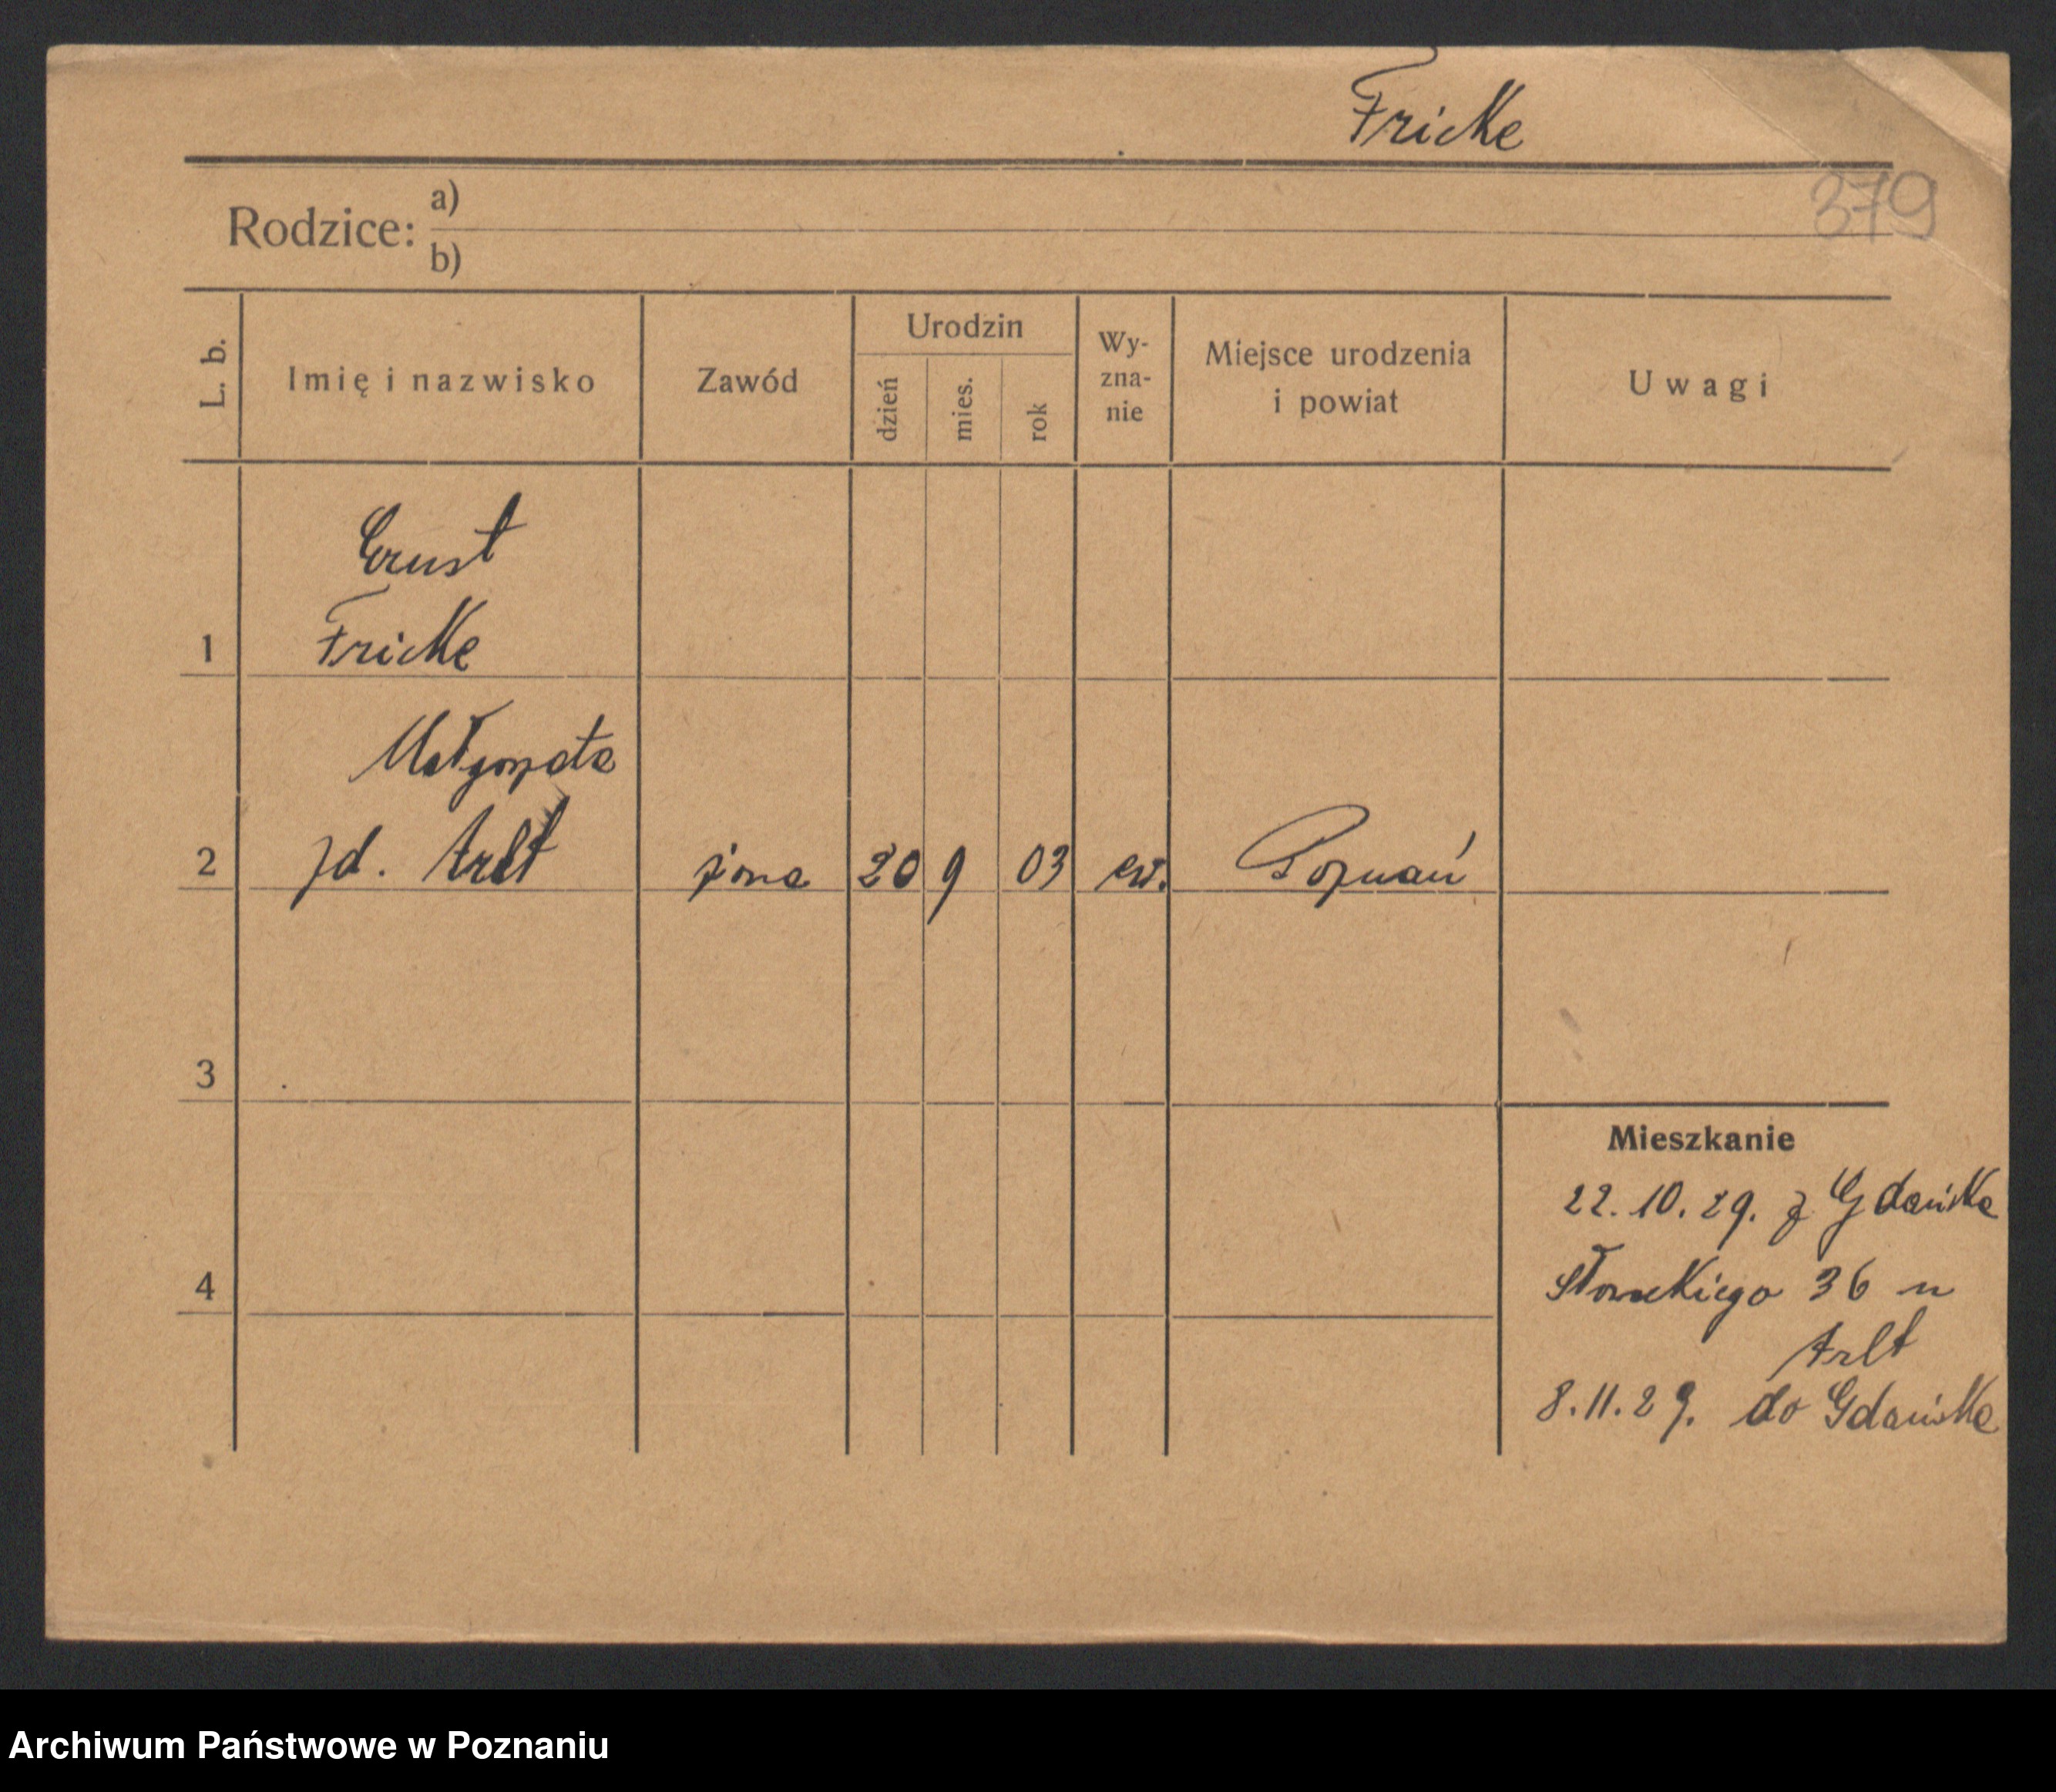 Fricke
379
Rodzice: a)
b)
L. b.
Imię i nazwisko
Zawód
Urodzin
dzień
mies.
rok
Wy-
zna-
nie
Miejsce urodzenia
i powiat
Uwagi
Ernst
1 Fricke
Małgorzata
2 zd. Arlt żona 20 9 03 ew. Poznań
3
4
Mieszkanie
22.10.29. z Gdańska
Słowackiego 36 u
Arlt
8.11.29. do Gdańska
Archiwum Państwowe w Poznaniu